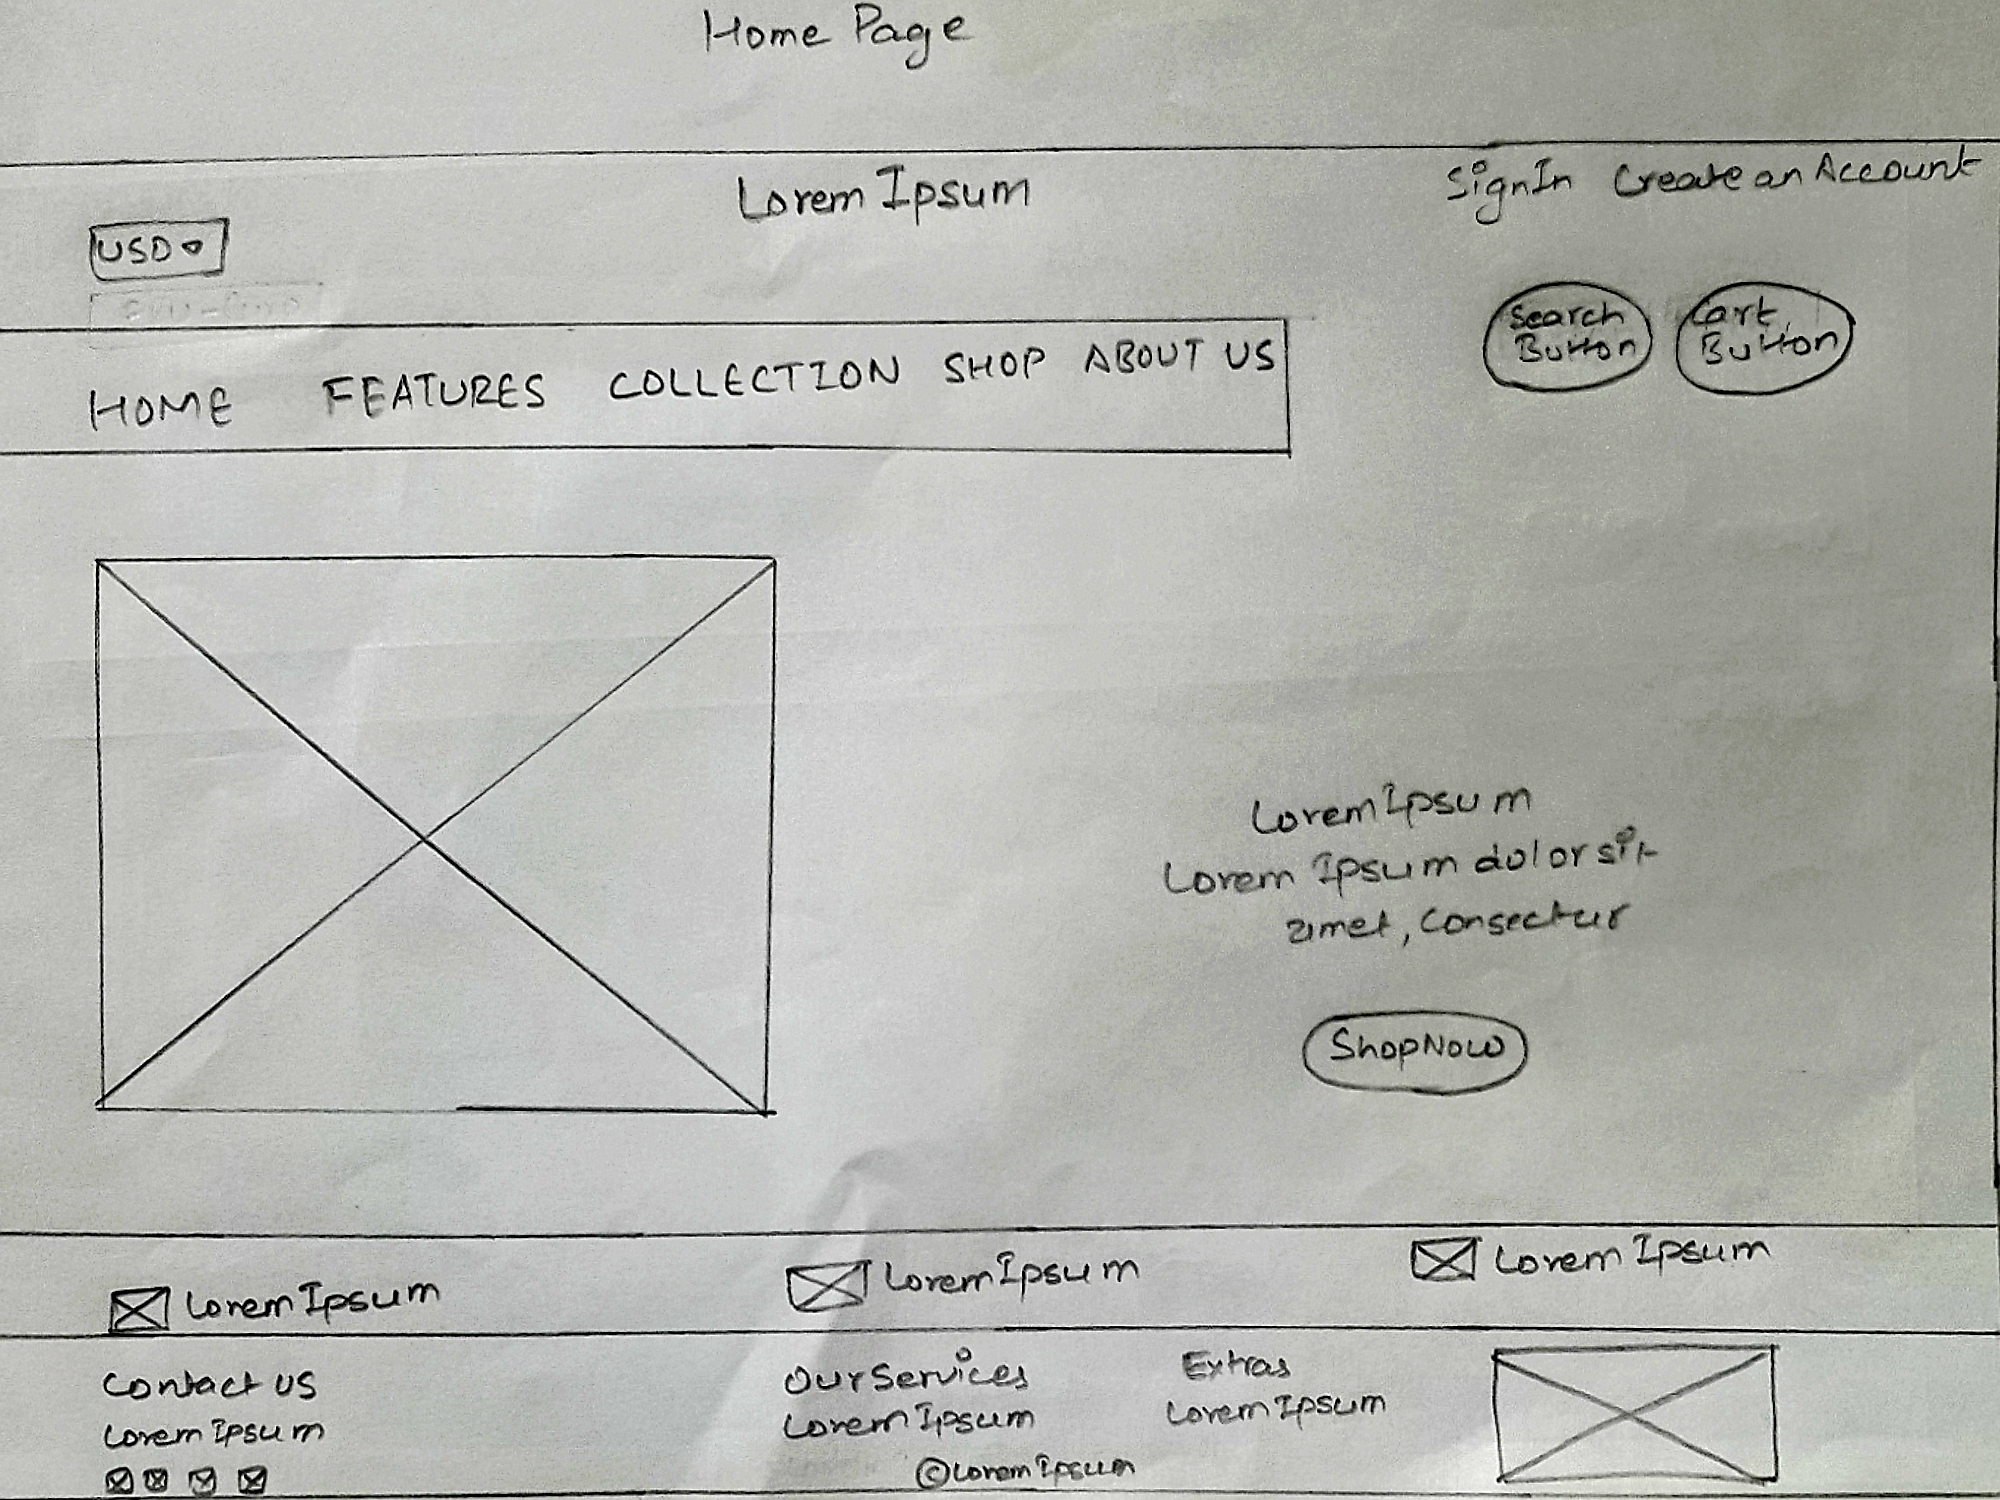 Home Page
Lorem Ipsum
SignIn Create an Account
USD
Search Button
Cart Button
HOME FEATURES COLLECTION SHOP ABOUT US
Lorem Ipsum
Lorem Ipsum dolor sit
amet, consectur
Shop Now
Lorem Ipsum
Lorem Ipsum
Lorem Ipsum
Contact US
Lorem Ipsum
Our Services
Lorem Ipsum
Extras
Lorem Ipsum
©Lorem Ipsum